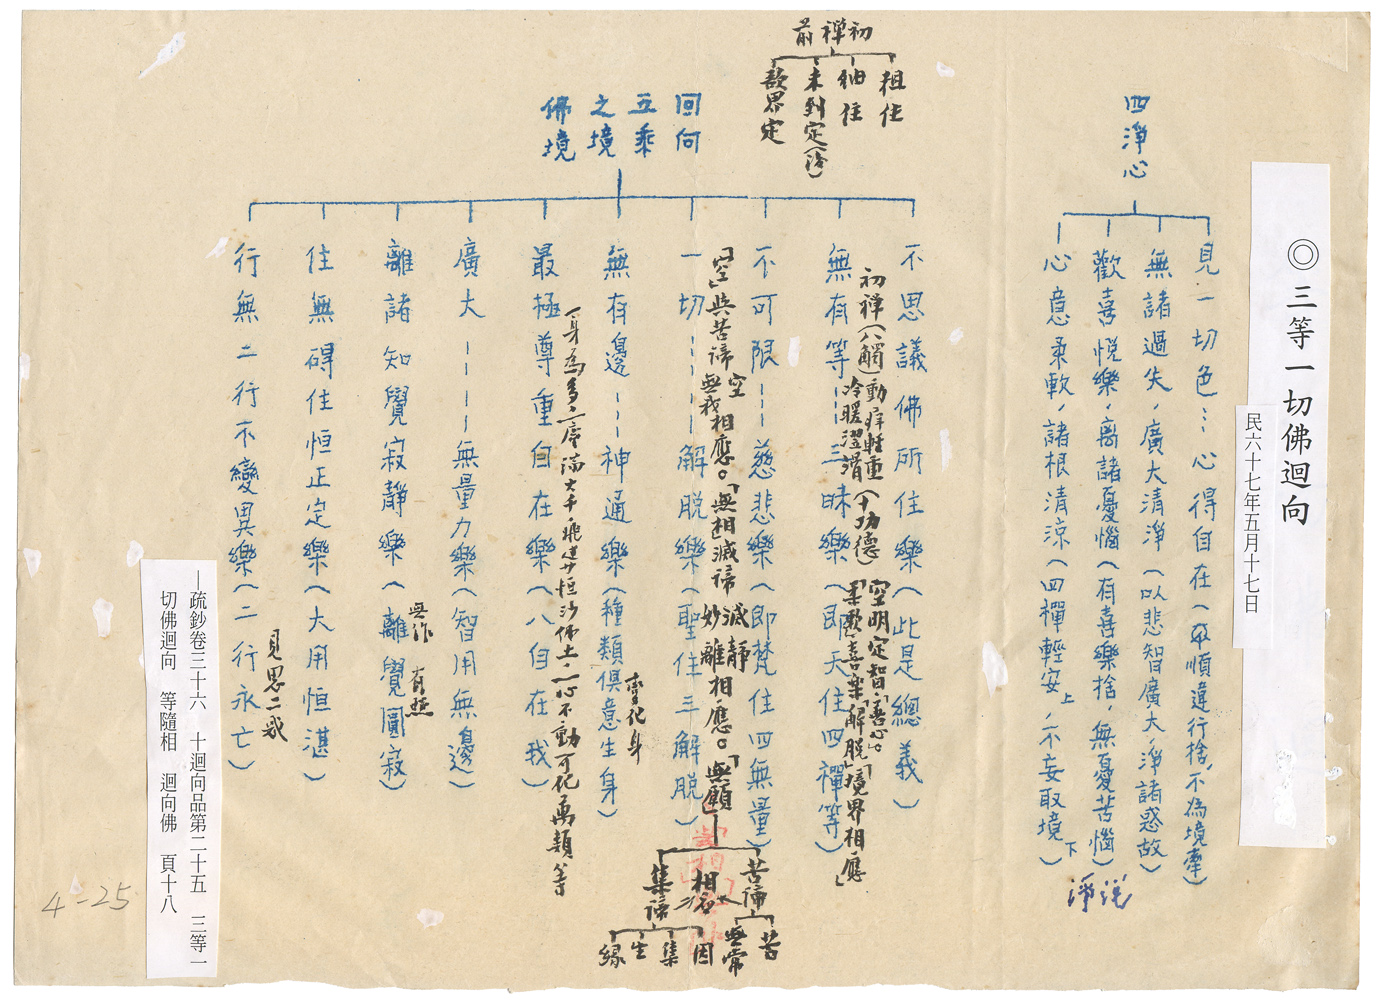 ◎三等一切佛迴向
民六十七年五月十七日
四淨心
見一切色…心得自在(不順違行捨,不為境牽)
無諸過失,廣大清淨(以悲智廣大淨諸惑故)
歡喜悅樂,离諸憂惱(有喜樂捨,無憂苦惱)
心意柔軟,諸根清涼(四禪輕安上,不妄取境下)
淨説
初禪前
粗住
細住
未到定
欲界定
回向五乘之境佛境
不思議佛所住樂(此是總義)
初禪(八觸)動痒輕重
冷暖澀滑
(十功德)
空明定智,善心。
柔軟喜樂解脫境界相應」
無有等…三昧樂(即天住四禪等)
不可限---慈悲樂(即梵住四無量)
「空」與苦諦空無我相應。「無相」滅諦滅靜妙離相應。「無願」
苦諦
苦
無常
集諦
因
集
生
緣
相應
一切……解脫樂(聖住三解脫)
無有邊---神通樂(種類俱意生身)
變化身
最極尊重自在樂(八自在我)
一身為多,一序滿大千飛進廿恒沙佛土,一心不動可化萬類等
廣大----無量力樂(智用無邊)
離諸知覺寂靜樂(離覺圓寂)
無作
有照
住無碍住恒正定樂(大用恒湛)
行無二行不變異樂(二行永亡)
見思二惑
—疏鈔卷三十六 十迴向品第二十五 三等一
切佛迴向 等隨相 迴向佛 頁十八
4-25